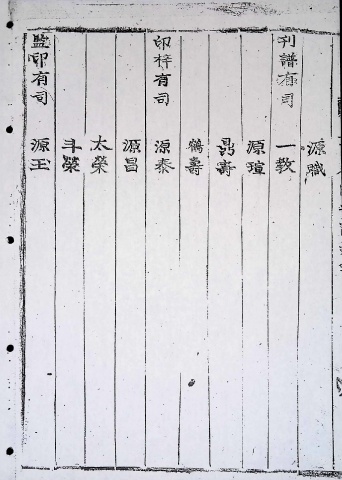 源職
刊譜有司 一教
源瑄
鼎壽
鶴壽
印梓有司 源泰
源昌
太榮
斗榮
監印有司 源玉